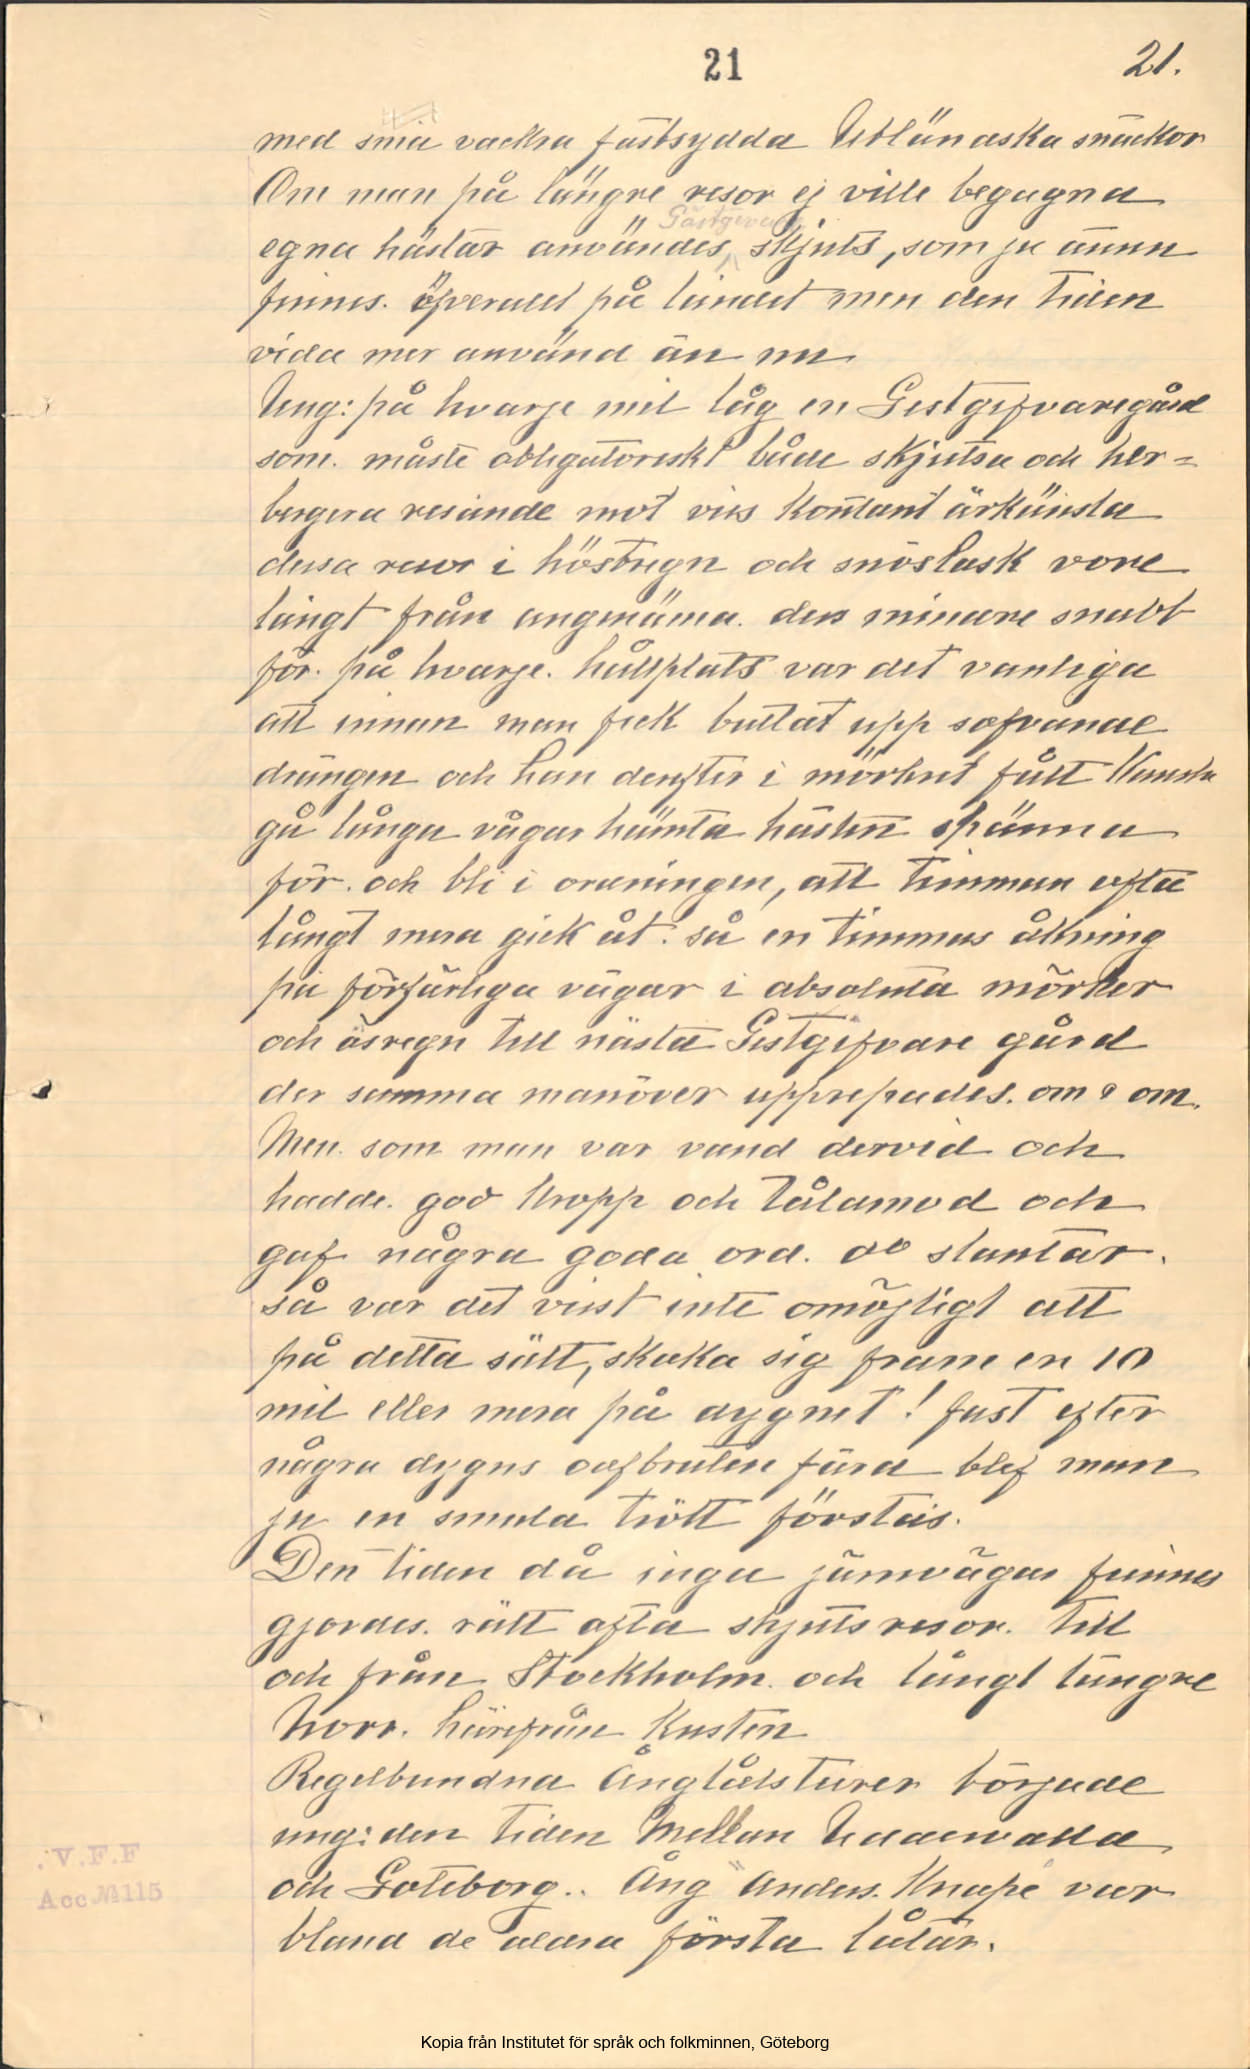 21
21.
med små vackra fastsydda Utländska snäckor
Om man på längre resor ej ville begagna
egna hästar användes, Gästgevare skjuts, som ju ännu
finnes. öfverallt på landet men den tiden
vida mer använd än nu
Ung: på hvarje mil låg en Gestgifvaregård
som. måste obligatoriskt både skjutsa och her=
bergera resande mot viss kontant ärkänsla
dessa resor i höstregn och snöslask vore
långt från angenäma. dess mindre snabb
för. på hvarje. hållplats var det vanliga
att innan man fick bultat upp sofvande
drängen och han derefter i mörkret fått kanske
gå långa vägar hämta hästen spänna
för. och bli i ordningen, att timman ofta
långt mera gick åt. så en timmas åkning
på förfärliga vägar i absoluta mörker
och ösregn till nästa Gestgifvare gård
der samma manöver upprepades. om & om.
Men. som man var vand dervid och
hadde. god kropp och tålamod och
gaf några goda ord. oc slantar.
så var det visst inte omöjligt att
på detta sätt, skaka sig fram en 10
mil eller mera på dygnet! fast efter
några dygns oafbruten färd blef man
ju en smula trött förstås.
Den tiden då inga järnvägar funnes
gjordes. rätt ofta skjutsresor. till
och från Stockholm. och långt längre
norr. härifrån Kusten
Regelbundna Ångbåtsturer började
ung: den tiden Mellan Uddewalla
och Göteborg.. Ång "Anders. Knape var
bland de aldra första båtar.
.V.F.F
Acc № 115
Kopia från Institutet för språk och folkminnen, Göteborg